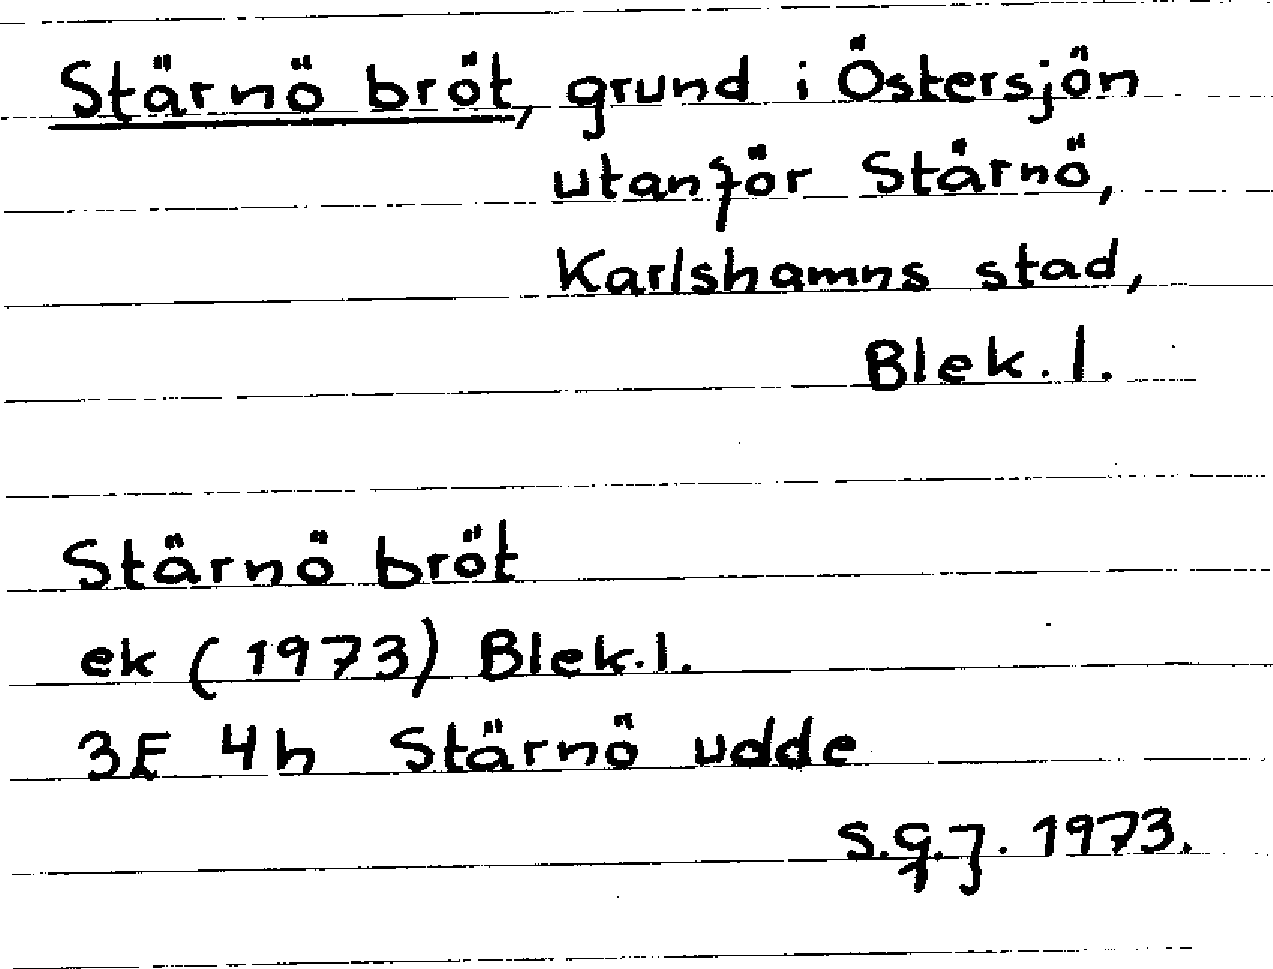 Stärnö bröt, grund i Östersjön
utanför Stärnö,
Karlshamns stad,
Blek. l.
Stärnö bröt
ek (1973) Blek. l.
3F 4h Stärnö udde
S.G.J. 1973.